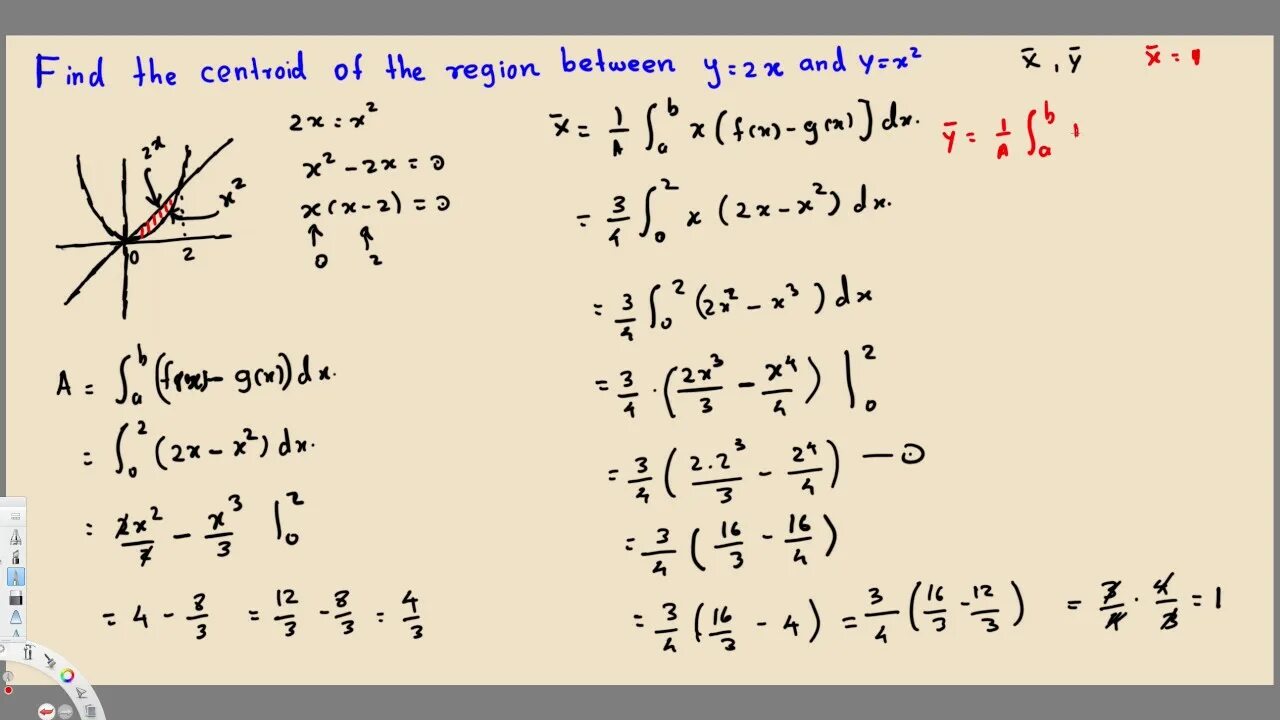 Find the centroid of the region between y=2x and y=x²
x̄ , ȳ
x̄ = 1
2x
x²
0
2
2x = x²
x² - 2x = 0
x(x-2) = 0
↑ ↑
0 2
A = ∫_a^b (f(x) - g(x)) dx.
= ∫_0^2 (2x - x²) dx.
= 2x²/2 - x³/3 |_0^2
= 4 - 8/3 = 12/3 - 8/3 = 4/3
x̄ = 1/A ∫_a^b x (f(x) - g(x)] dx.
= 3/4 ∫_0^2 x (2x - x²) dx.
= 3/4 ∫_0^2 (2x² - x³) dx
= 3/4 · (2x³/3 - x⁴/4) |_0^2
= 3/4 (2.2³/3 - 2⁴/4) - 0
= 3/4 (16/3 - 16/4)
= 3/4 (16/3 - 4) = 3/4 (16/3 - 12/3) = 3/4 · 4/3 = 1
ȳ = 1/A ∫_a^b